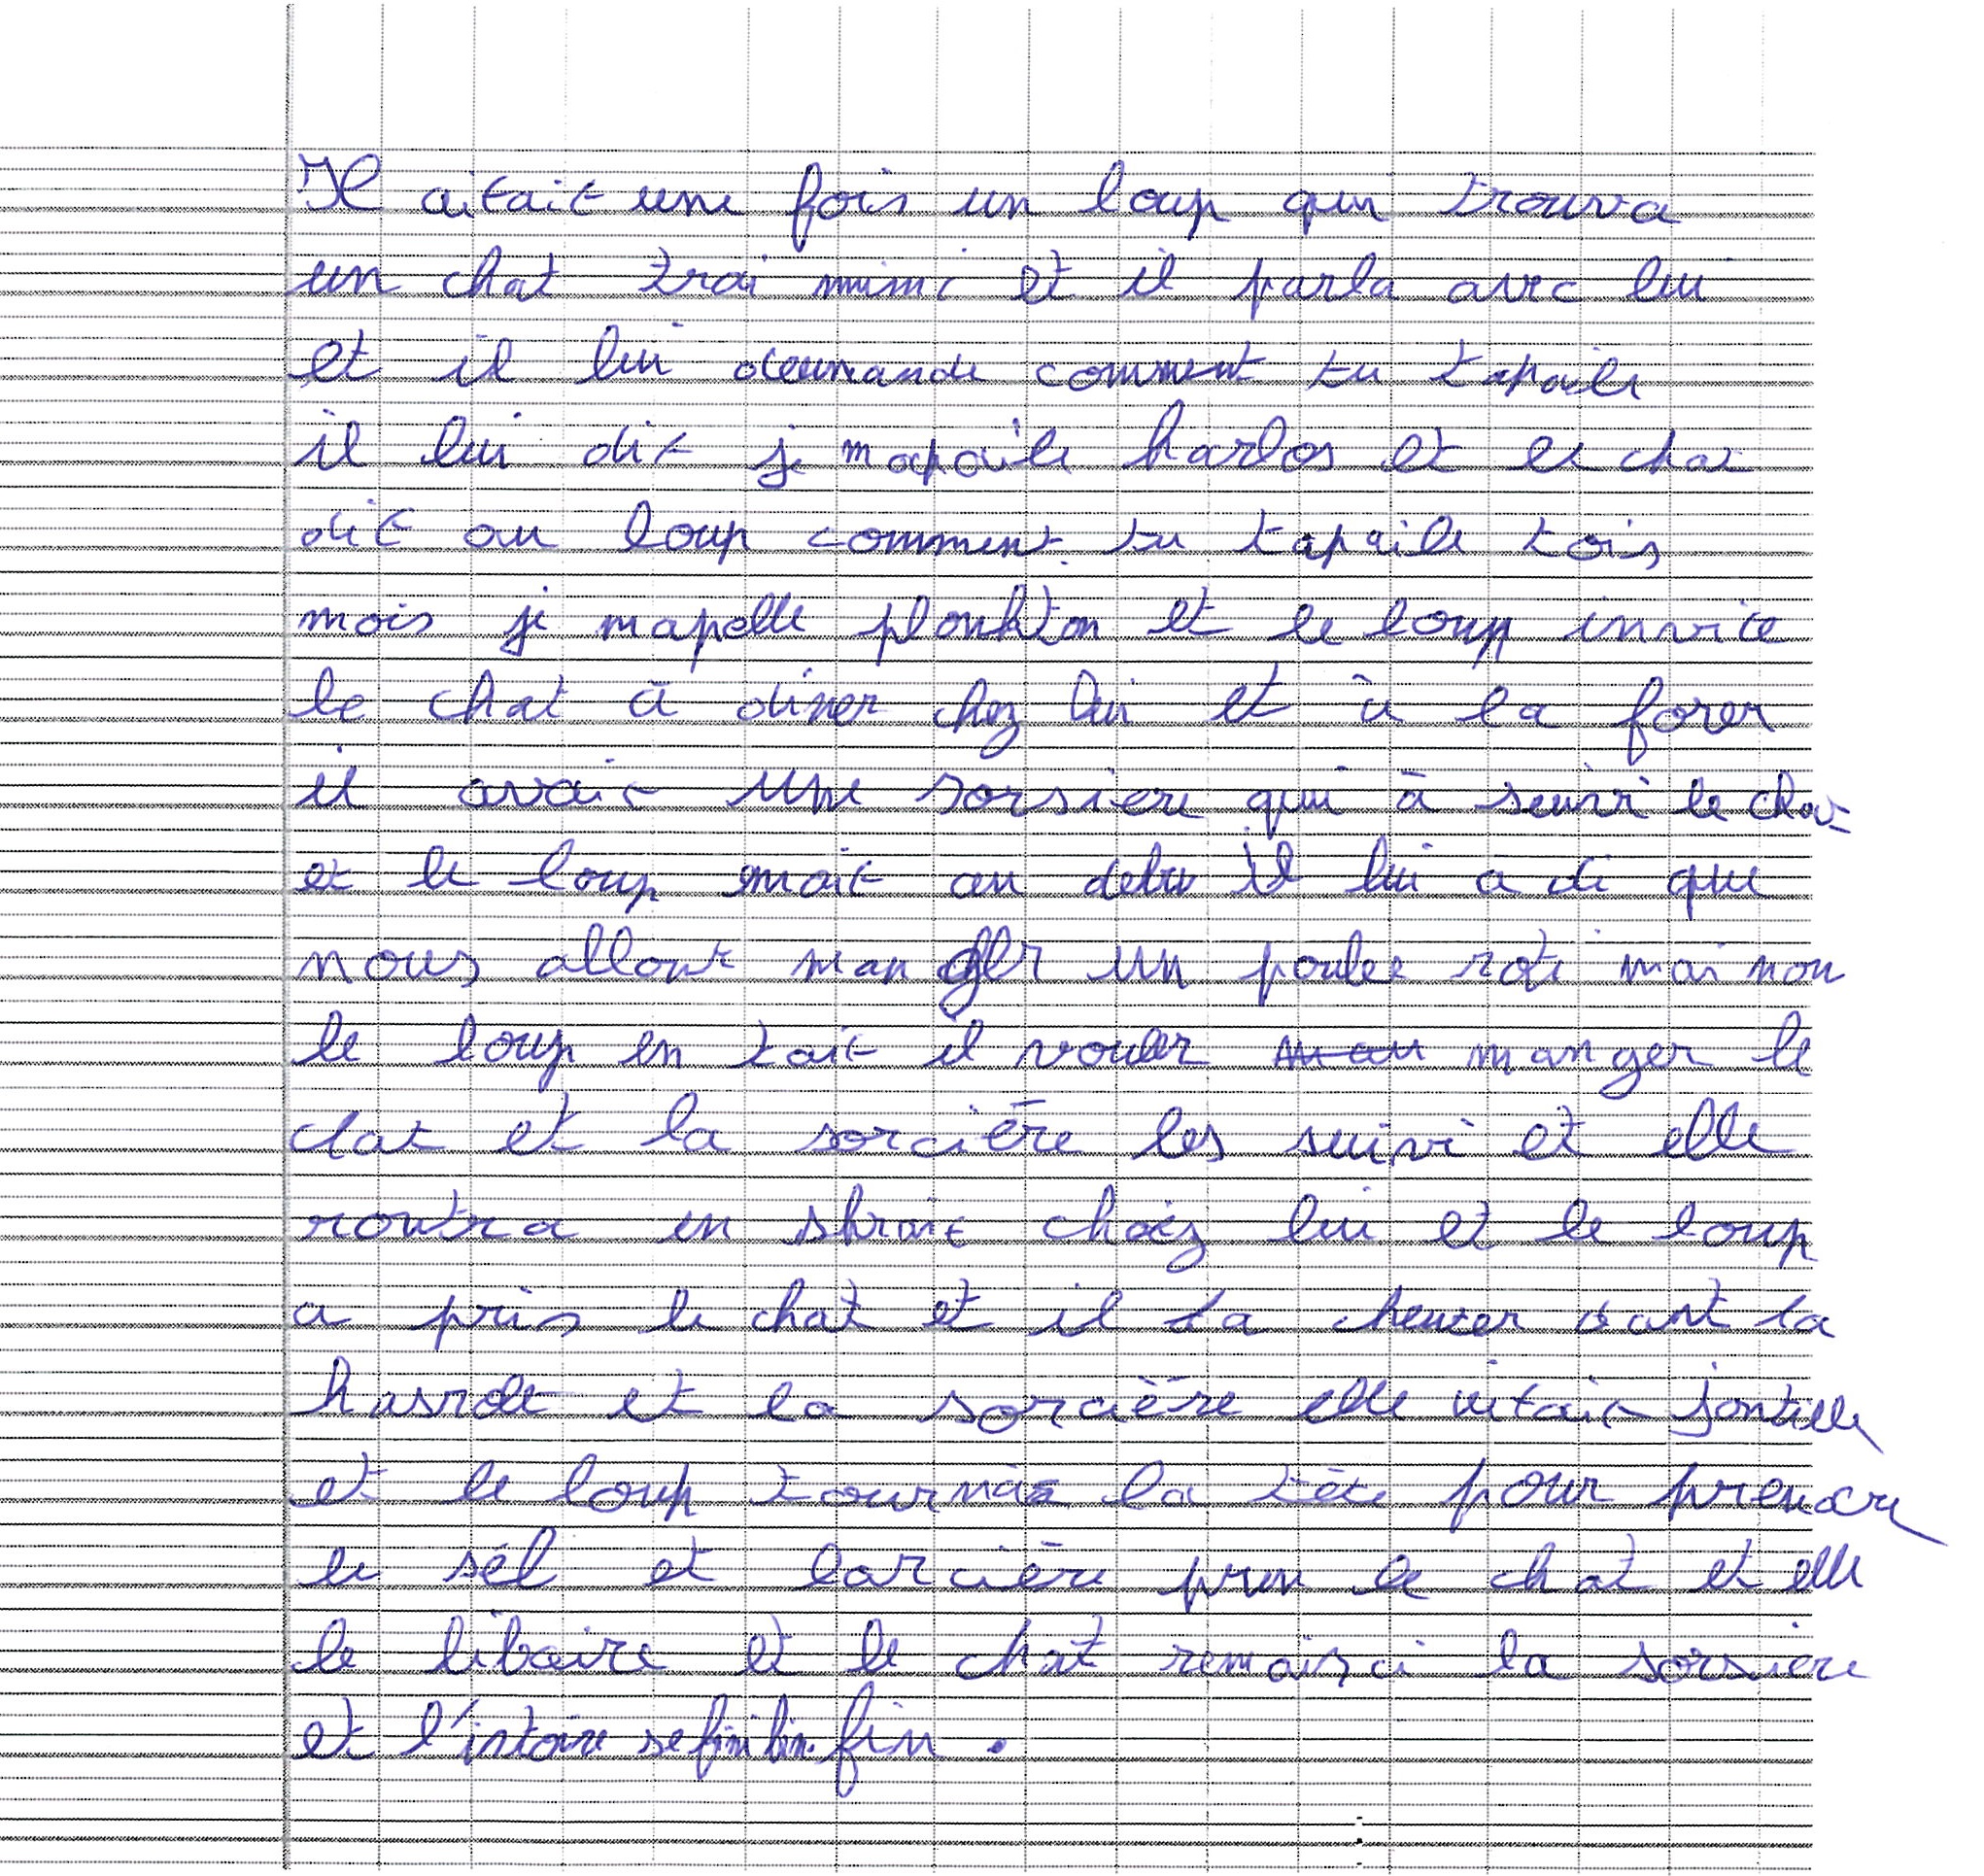 Il aitait une fois un loup qui trouva
un chat trai mimi et il parla avec lui
et il lui deumande comment tu tapaile
il lui dit je mapaile karlos et le chat
dit au loup comment tu tapaile tois
mois je mapelle plonkton et le loup invite
le chat à diner chez lui et à la forer
il avait une sorsiere qui à suivi le chat
et le loup mait au debu il lui a di que
nous allont manger un poulet roti mai non
le loup en tait il vouler manger le
chat et la sorcière les suivi et elle
rontra en chez lui et le loup
a pris le chat et il la dant la
kasrole et la sorcière elle aitait jontille
et le loup tourna la tête pour prendre
le sel et larcière pren le chat et elle
le libaire et le chat remaisci la sorsiere
et l'intoire se fini bin. fin.